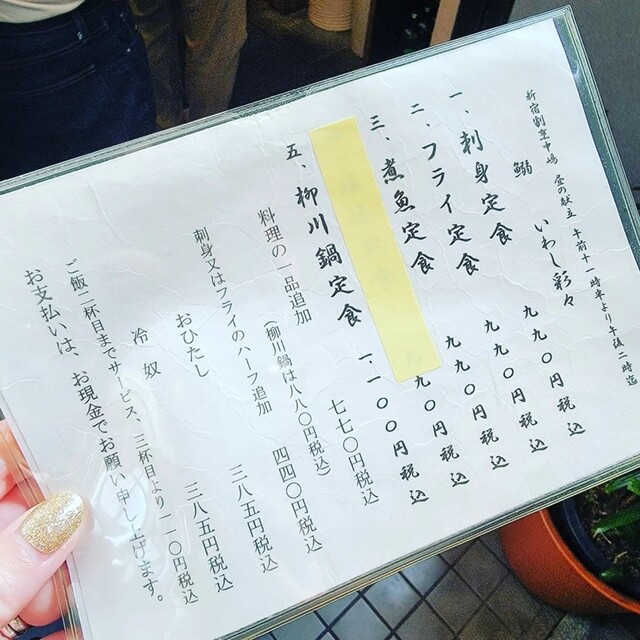 新宿割烹中嶋 昼の献立 午前十一時半より午後二時迄
鰯 いわし彩々
一、刺身定食 九九〇円税込
二、フライ定食 九九〇円税込
三、煮魚定食 九九〇円税込
九〇円税込
五、柳川鍋定食 一、一〇〇円税込
料理の一品追加 七七〇円税込
(柳川鍋は八八〇円税込)
刺身又はフライのハーフ追加 四四〇円税込
おひたし 三八五円税込
冷奴 三八五円税込
ご飯二杯目までサービス、三杯目より一一〇円税込
お支払いは、お現金でお願い申し上げます。